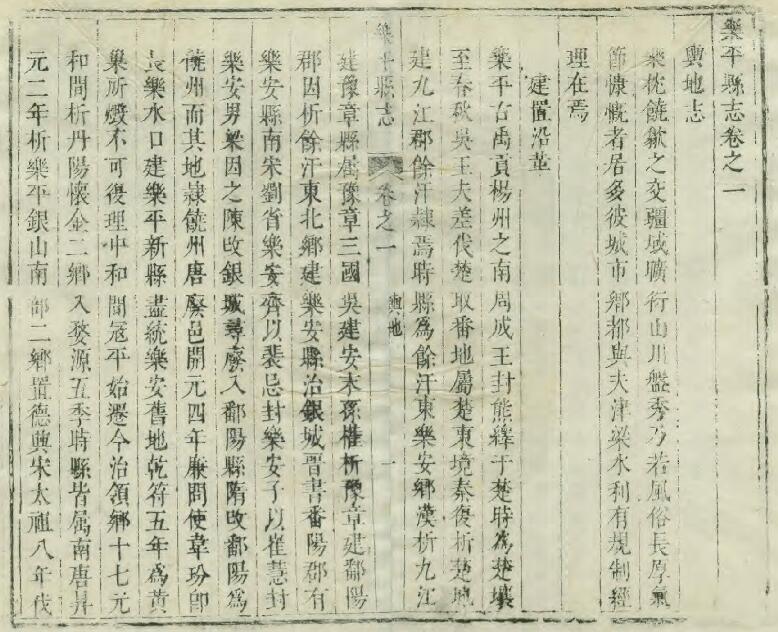 樂平縣志卷之一
輿地志
樂枕饒歙之交疆域曠衍山川盤秀乃若風俗長厚氣
節慷慨者居多彼城市鄉都與夫津梁水利有規制經
理在焉
建置沿革
樂平古禹貢楊州之南周成王封熊繹于楚時為楚壤
至春秋吳王夫差伐楚取番地屬楚東境秦復析楚地
建九江郡餘汗隸焉時縣為餘汗東樂安鄉漢析九江
樂平縣志 卷之一 輿地 一
建豫章縣屬豫章三國吳建安末孫權析豫章建鄱陽
郡因析餘汗東北鄉建樂安縣治銀城晉書番陽郡有
樂安縣南宋劉省樂安齊以裴忌封樂安子以崔慧封
樂安男梁因之陳改銀城尋廢入鄱陽縣隋改鄱陽為
饒州而其地隸饒州唐廢邑開元四年廉問使韋玢卽
長樂水口建樂平新縣盡統樂安舊地乾符五年為黃
巢所燬不可復理中和間冦平始遷今治領鄉十七元
和間析丹陽懷金二鄉入婺源五季時縣皆屬南唐昇
元二年析樂平銀山南部二鄉置德興宋太祖八年伐